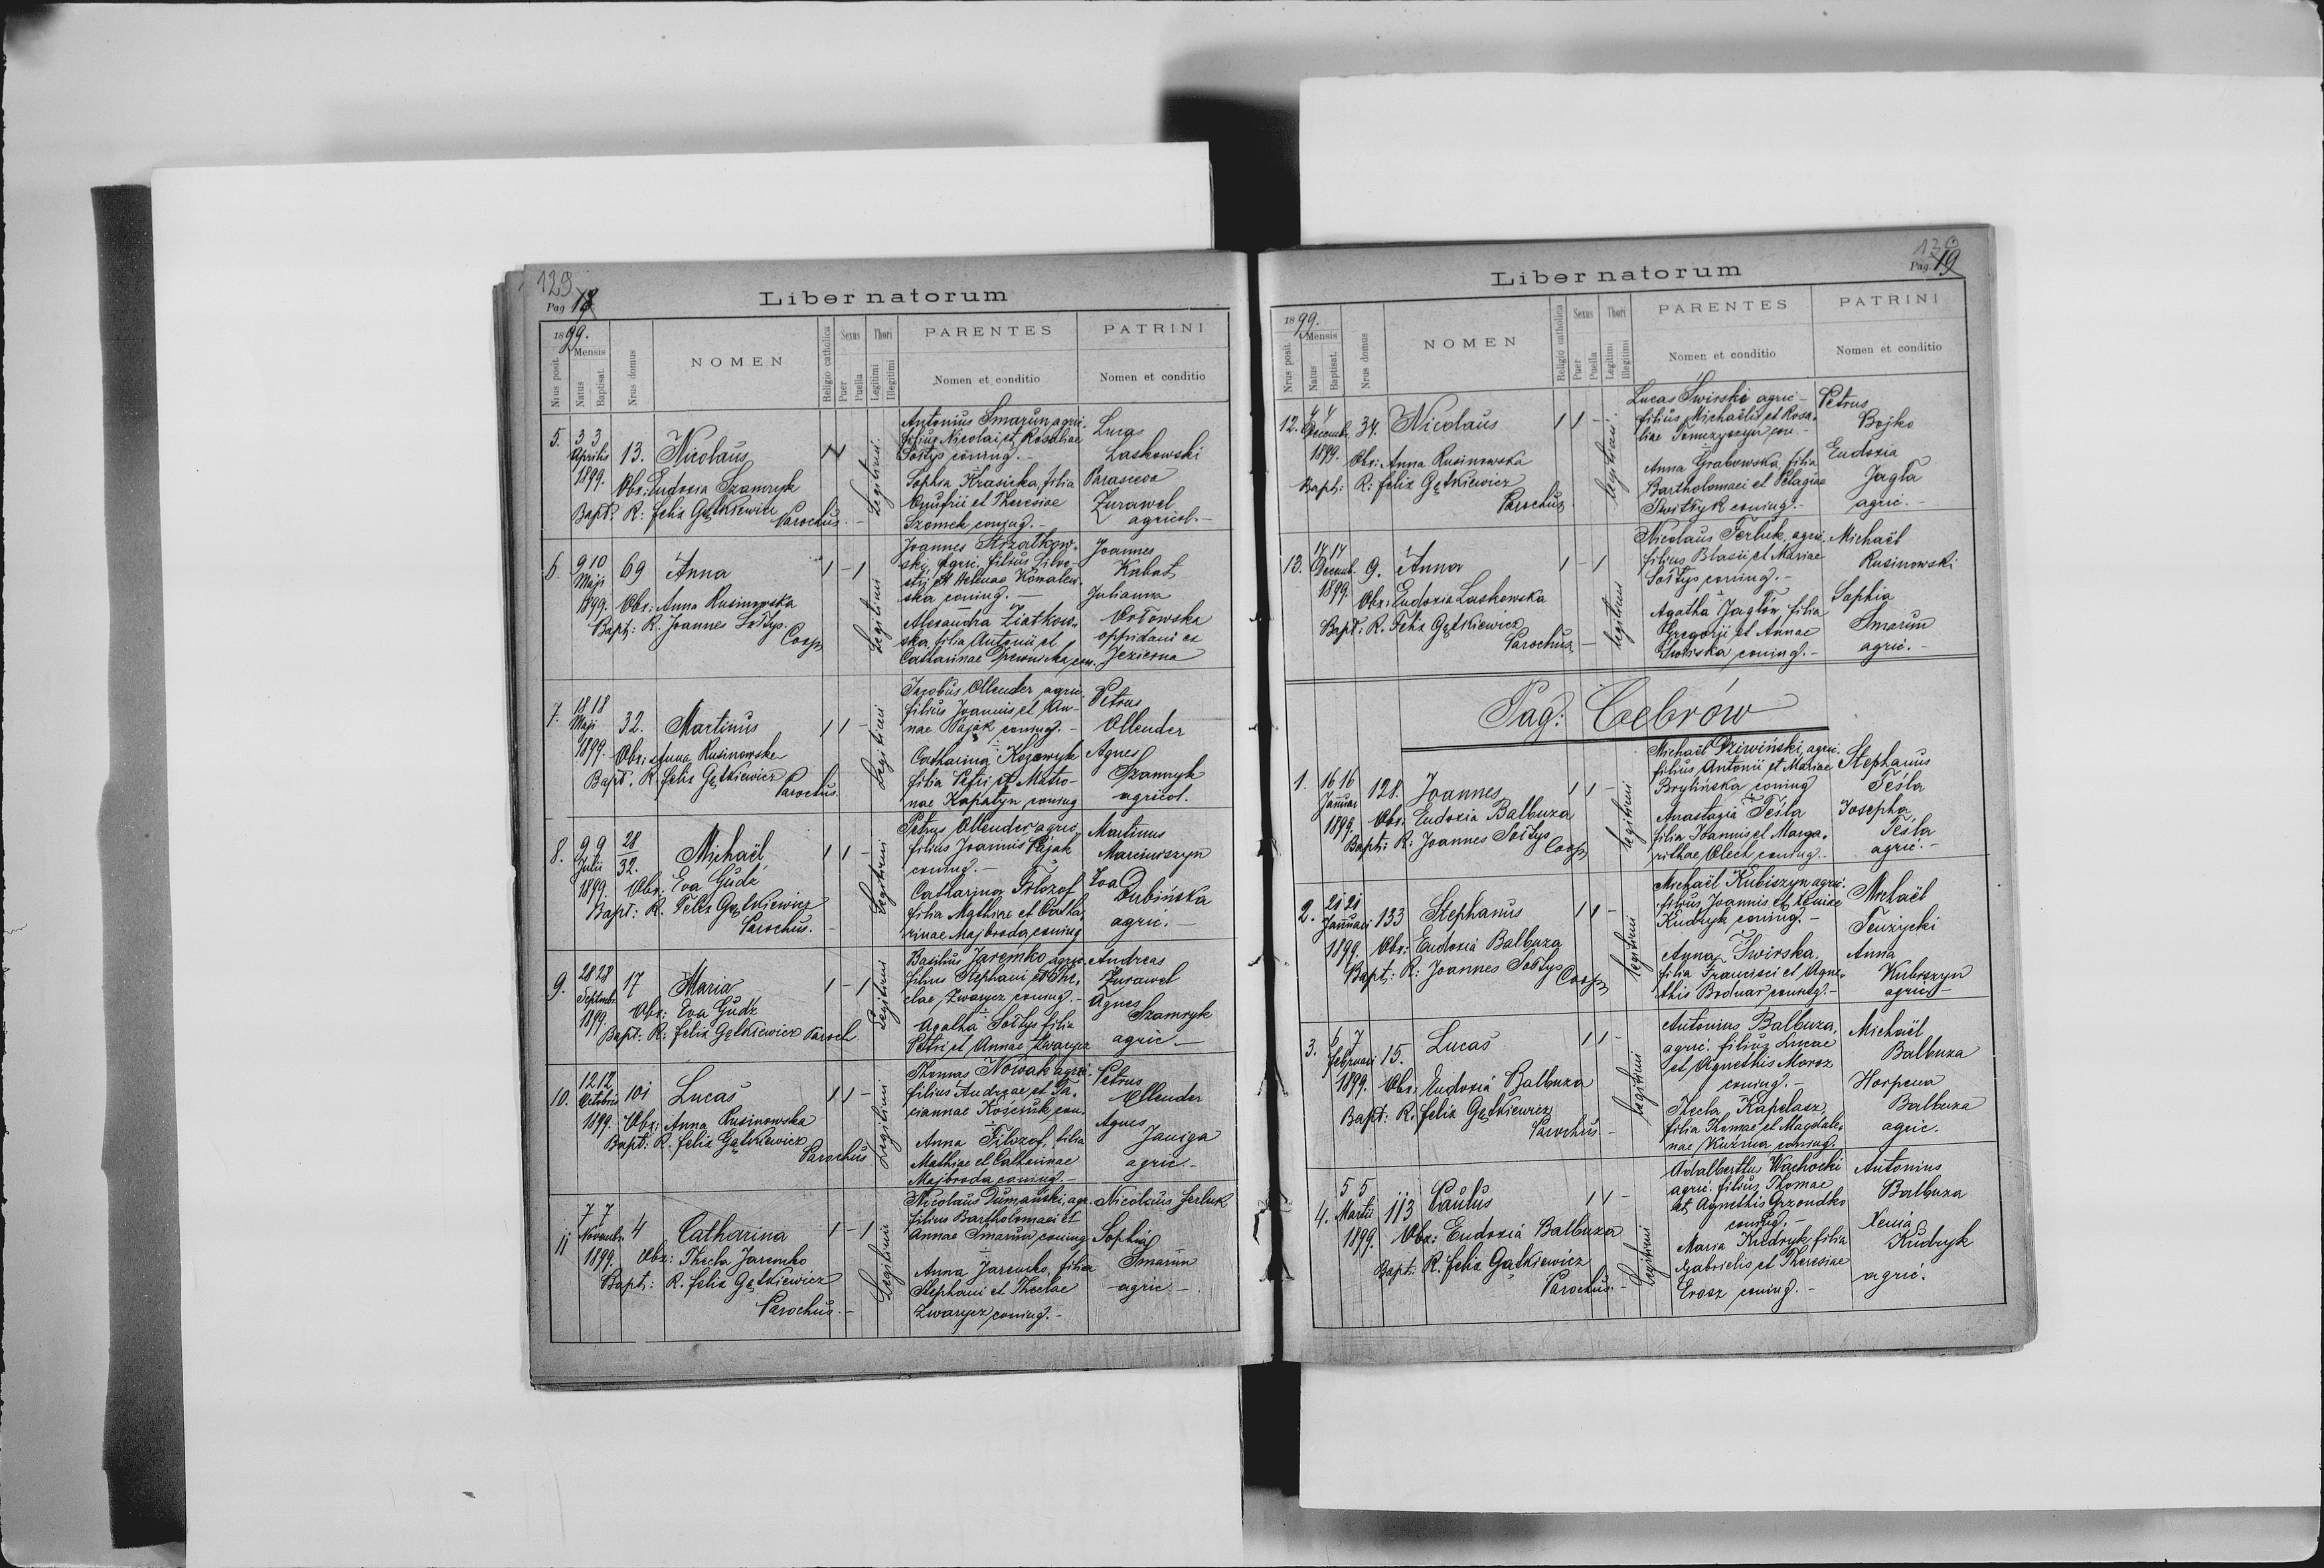 129
Pag 18
Liber natorum
1899.
Nrus posit.
Mensis
Natus
Baptisat.
Nrus domus
NOMEN
Religio catholica
Sexus
Puer
Puella
Thori
Legitimi
Illegitimi
PARENTES
Nomen et conditio
PATRINI
Nomen et conditio
5. 3 3 Aprilis 1899. 13. Nicolaus
Obs: Eudoxia Szamryk
Bapt. R: Felix Gątkiewicz
Parochus.-
Legitimi.
Antonius Smarun agric.
filius Nicolai et Rosaliae
Sołtys coniug.-
Sophia Krasicka, filia
Onufrii et Theresiae
Szomek coniug.-
Lucas
Laskowski
Parasceva
Żurawel
agricol.-
6. 9 10 Maji 1899. 69 Anna 1 - 1
Obs: Anna Rusinowska
Bapt: R. Joannes Sołtys.
Coop
Legitimi
Joannes Strzałkow-
ski, agric. filius Silve-
stri et Helenae Kowalew-
ska coniug.-
Alexandra Ziatkow-
ska, filia Antonii et
Catharinae con.
Joannes
Kabat
Julianna
Orłowska
oppidani ex
Jezierna
7. 18 18 Maji 1899. 32. Martinus 1 1 -
Obs: Anna Rusinowska
Bapt. R. Felix Gątkiewicz
Parochus.
Legitimi
Jacobus Ollender agric.
filius Joannis et An-
nae Pająk coniug.-
Catharina
filia Petri et Matro-
nae Kapatyn coniug
Petrus
Ollender
Agnes
Szamryk
agricol.
8. 9 9 Julii 1899. 28/32. Michaël 1 1 -
Obs. Eva Gudz
Bapt: R. Felix Gątkiewicz
Parochus.-
Legitimi
Petrus Ollender agric.
filius Joannis Pająk
coniug.-
Catharina Filozof
filia Mathiae et Catha-
rinae Majbroda coniug
Martinus
Marciniszyn
Eva
Dubińska
agric.-
9. 28 28 Septembr. 1899. 17 Maria 1 - 1
Obs: Eva Gudz
Bapt. R: Felix Gątkiewicz Paroch
Legitimi
Basilius Jaremko agric.
filius Stephani et The-
clae Zwarycz coniug.-
Agatha Sołtys filia
Petri et Annae Zwarycz
Andreas
Żurawel
Agnes
Szamryk
agric.-
10. 12 12 Octobris 1899. 101 Lucas 1 1 -
Obs: Anna Rusinowska
Bapt: R. Felix Gątkiewicz
Parochus
Legitimi
Thomas Nowak agric.
filius Andreae et Ta-
ciannae Kościuk con.
Anna Filozof, filia
Mathiae et Catharinae
Majbroda coniug.-
Petrus
Ollender
Agnes
Janiga
agric.-
11 7 7 Novembr. 1899. 4 Catharina 1 - 1
Obs: Thecla Jaremko
Bapt.: R. Felix Gątkiewicz
Parochus.-
Legitimi
Nicolaus Dumański, agr.
filius Bartholomaei et
Annae Smarun coniug
Anna Jaremko, filia
Stephani et Theclae
Zwarycz coniug.-
Nicolaus Ferluk
Sophia
Smarun
agric.-
130
Pag. 19
Liber natorum
1899.
Nrus posit.
Mensis
Natus
Baptisat.
Nrus domus
NOMEN
Religio catholica
Sexus
Puer
Puella
Thori
Legitimi
Illegitimi
PARENTES
Nomen et conditio
PATRINI
Nomen et conditio
12. Decembr. 1899. 34. Nicolaus 1 1 -
Obs: Anna Rusinowska
Bapt: R: Felix Gątkiewicz
Parochus
legitimi.
Lucas Swirski agric-
filius Michaëlis et Rosa-
liae
Anna Grabowska, filia
Bartholomaei et Pelagiae
coniug.-
Petrus
Bojko
Eudoxia
Jagła
agric.-
13. 17 17 Decemb. 1899 9. Anna 1 - 1
Obs: Eudoxia Laskowska
Bapt: R. Felix Gątkiewicz
Parochus-
legitimi
Nicolaus Ferluk, agric.
filius Blasii et Mariae
Sołtys coniug.-
Agatha Jagłow, filia
Gregorji et Annae
Swirska coniug.-
Michaël
Rusinowski
Sophia
Smarun
agric.-
Pag: Cebrów
1. 16 16 Januar 1899. 128. Joannes 1 1 -
Obs: Eudoxia Balbuza
Bapt: R: Joannes Sołtys
Coop
legitimi
Michaël Dziwiński, agric.
filius Antonii et Mariae
Brylińska coniug
Anastazia Teśla
filia Joannis et Marga-
rithae Olech coniug.-
Stephanus
Teśla
Josepha
Teśla
agric.-
2. 21 21 Januari 1899. 133 Stephanus 1 1 -
Obs: Eudoxia Balbuza
Bapt: R: Joannes Sołtys
Coop
legitimi
Michaël Kubiszyn agric.
filius Joannis et Xeniae
Kudryk coniug.-
Anna Swirska,
filia Francisci et Agne-
this Bodnar coniug.-
Michaël
Tenżycki
Anna
Kubiszyn
agric.-
3. 6 7 Februari 1899. 15. Lucas 1 1 -
Obs: Eudoxia Balbuza
Bapt: R. Felix Gątkiewicz
Parochus.-
legitimi
Antonius Balbuza,
agric. filius Lucae
et Agnethis Moroz
coniug.-
Thecla Kapelasz,
filia Thomae et Magdale-
nae Kuźma coniug.
Michaël
Balbuza
Horpena
Balbuza
agric.
4. 5 5 Martii 1899. 113 Paulus 1 1 -
Obs: Eudoxia Balbuza
Bapt: R. Felix Gątkiewicz
Parochus.-
Legitimi
Adalbertus Wachocki
agric. filius Thomae
et Agnethis Grzondko
coniug.-
Maria Kudryk, filia
Gabrielis et Theresiae
Erosz coniug.-
Antonius
Balbuza
Xenia
Kudryk
agric.